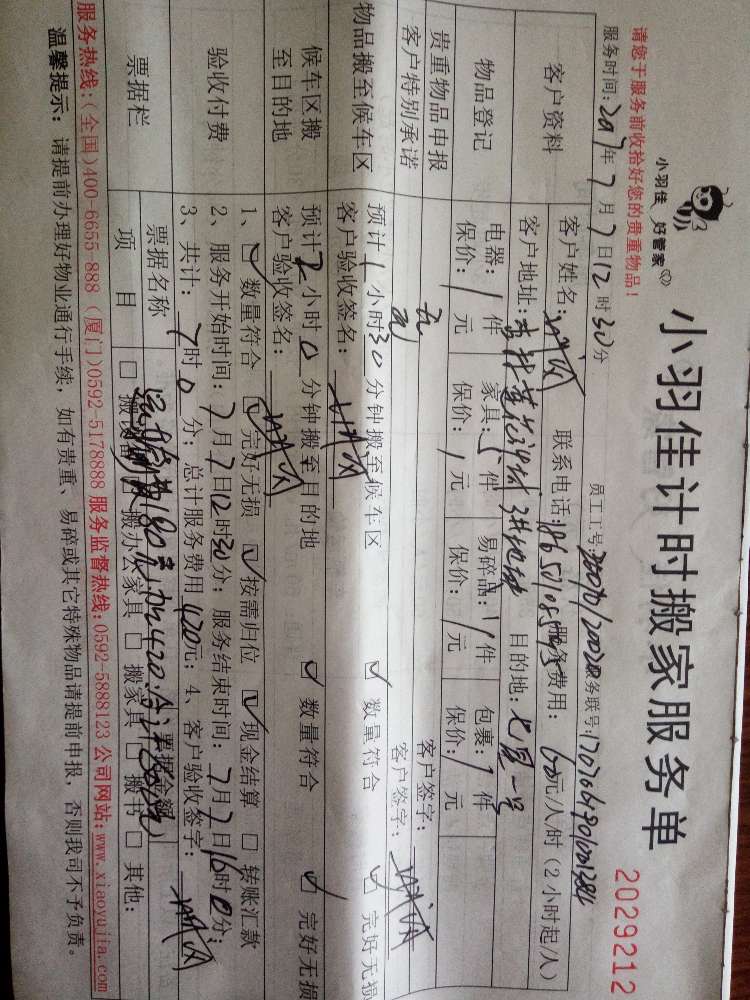 小羽佳 好管家
小羽佳计时搬家服务单
2029212
请您于服务前收拾好您的贵重物品！
服务时间：2017年7月7日12时30分 员工工号： 服务联号：
客户资料
客户姓名： 联系电话： 服务费用：60元/人/时（2小时起/人）
客户地址： 目的地：七星一号
物品登记
电器：1件 家具：1件 易碎品：1件 包裹：1件
保价：元 保价：1元 保价：1元 保价：元
贵重物品申报 无 客户签字：
客户特别承诺 客户签字：
物品搬至候车区
预计1小时30分钟搬至候车区 数量符合 完好无损
客户验收签名：
候车区搬至目的地
预计2小时0分钟搬至目的地 数量符合 完好无损
客户验收签名：
验收付费
1、数量符合 完好无损 按需归位 现金结算 转账汇款
2、服务开始时间：7月7日12时30分；服务结束时间：7月7日16时0分；
3、共计：7时0分；总计服务费用420元；4、客户验收签字：
票据栏
票据名称 票据金额
项目 搬设备 搬办公家具 搬家具 搬书 其他：
服务热线：（全国）400-6655-888（厦门）0592-5178888 服务监督热线：0592-5888123 公司网站：www.xiaoyujia.com
温馨提示：请提前办理好物业通行手续，如有贵重、易碎或其它特殊物品请提前申报，否则我司不予负责。